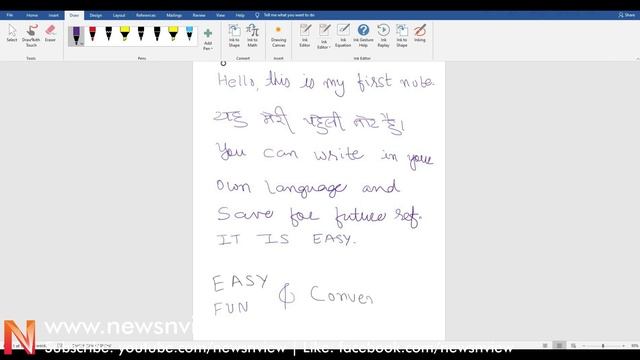 File Home Insert Draw Design Layout References Mailings Review View Help Tell me what you want to do Share
Select Draw with Touch Eraser Add Pen Ink to Shape Ink to Math Drawing Canvas Ink Editor Ink Equation Ink Gesture Help Ink Replay Ink to Shape Inking
Tools Pens Convert
Hello, this is my first note
यह मेरी पहली नोट है।
You can write in your
own language and
Save for future ref.
IT IS EASY.
EASY & Conver
FUN
www.newsnvie
Subscribe: youtube.com/newsnview | Like: facebook.com/newsnview